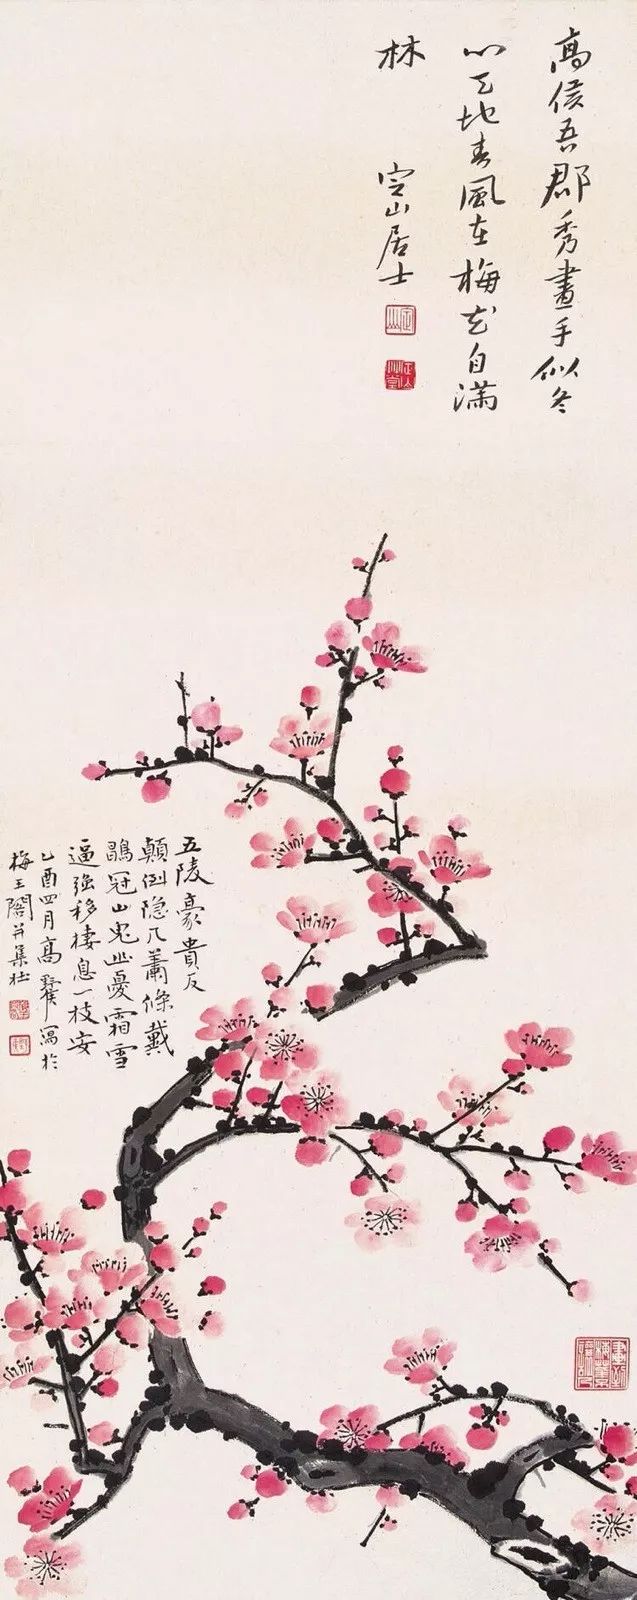 高侯吾郡秀畫手似冬
心天地春風在梅花自滿
林
定山居士
五陵豪貴反
顛倒隐几蕭條戴
鶡冠山鬼幽憂霜雪
逼強移棲息一枝安
乙酉四月高野侯寫於
梅王閣并集杜